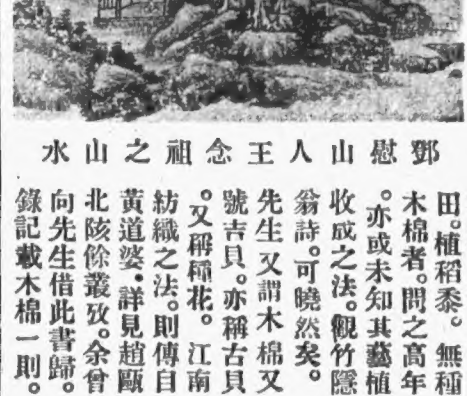 鄧慰山人王念祖之山水
田。植稻黍。無種
木棉者。問之高年
。亦或未知其藝植
收成之法。觀竹隱
翁詩。可曉然矣。
先生又謂木棉又
號吉貝。亦稱古貝
。又稱種花。江南
紡織之法。則傳自
黃道婆。詳見趙甌
北陔餘叢攷。余曾
向先生借此書歸。
錄記載木棉一則。